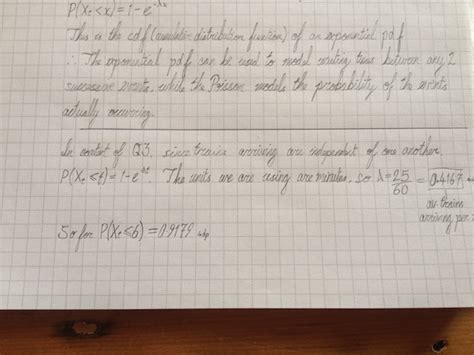 P(Xₜ<x)=1-e^-λx
This is the cdf (cumulative distribution function) of an exponential pdf
∴ The exponential pdf can be used to model waiting times between any 2
successive events, while the Poisson models the probability of the events
actually occurring.
In context of Q3, since trains arriving are independent of one another,
P(Xₜ≤t)=1-e^-λt. The units we are using are minutes, so λ=25/60 = 0.4167
av. trains
arriving per
So for P(Xₜ≤6)=0.9179 4dp